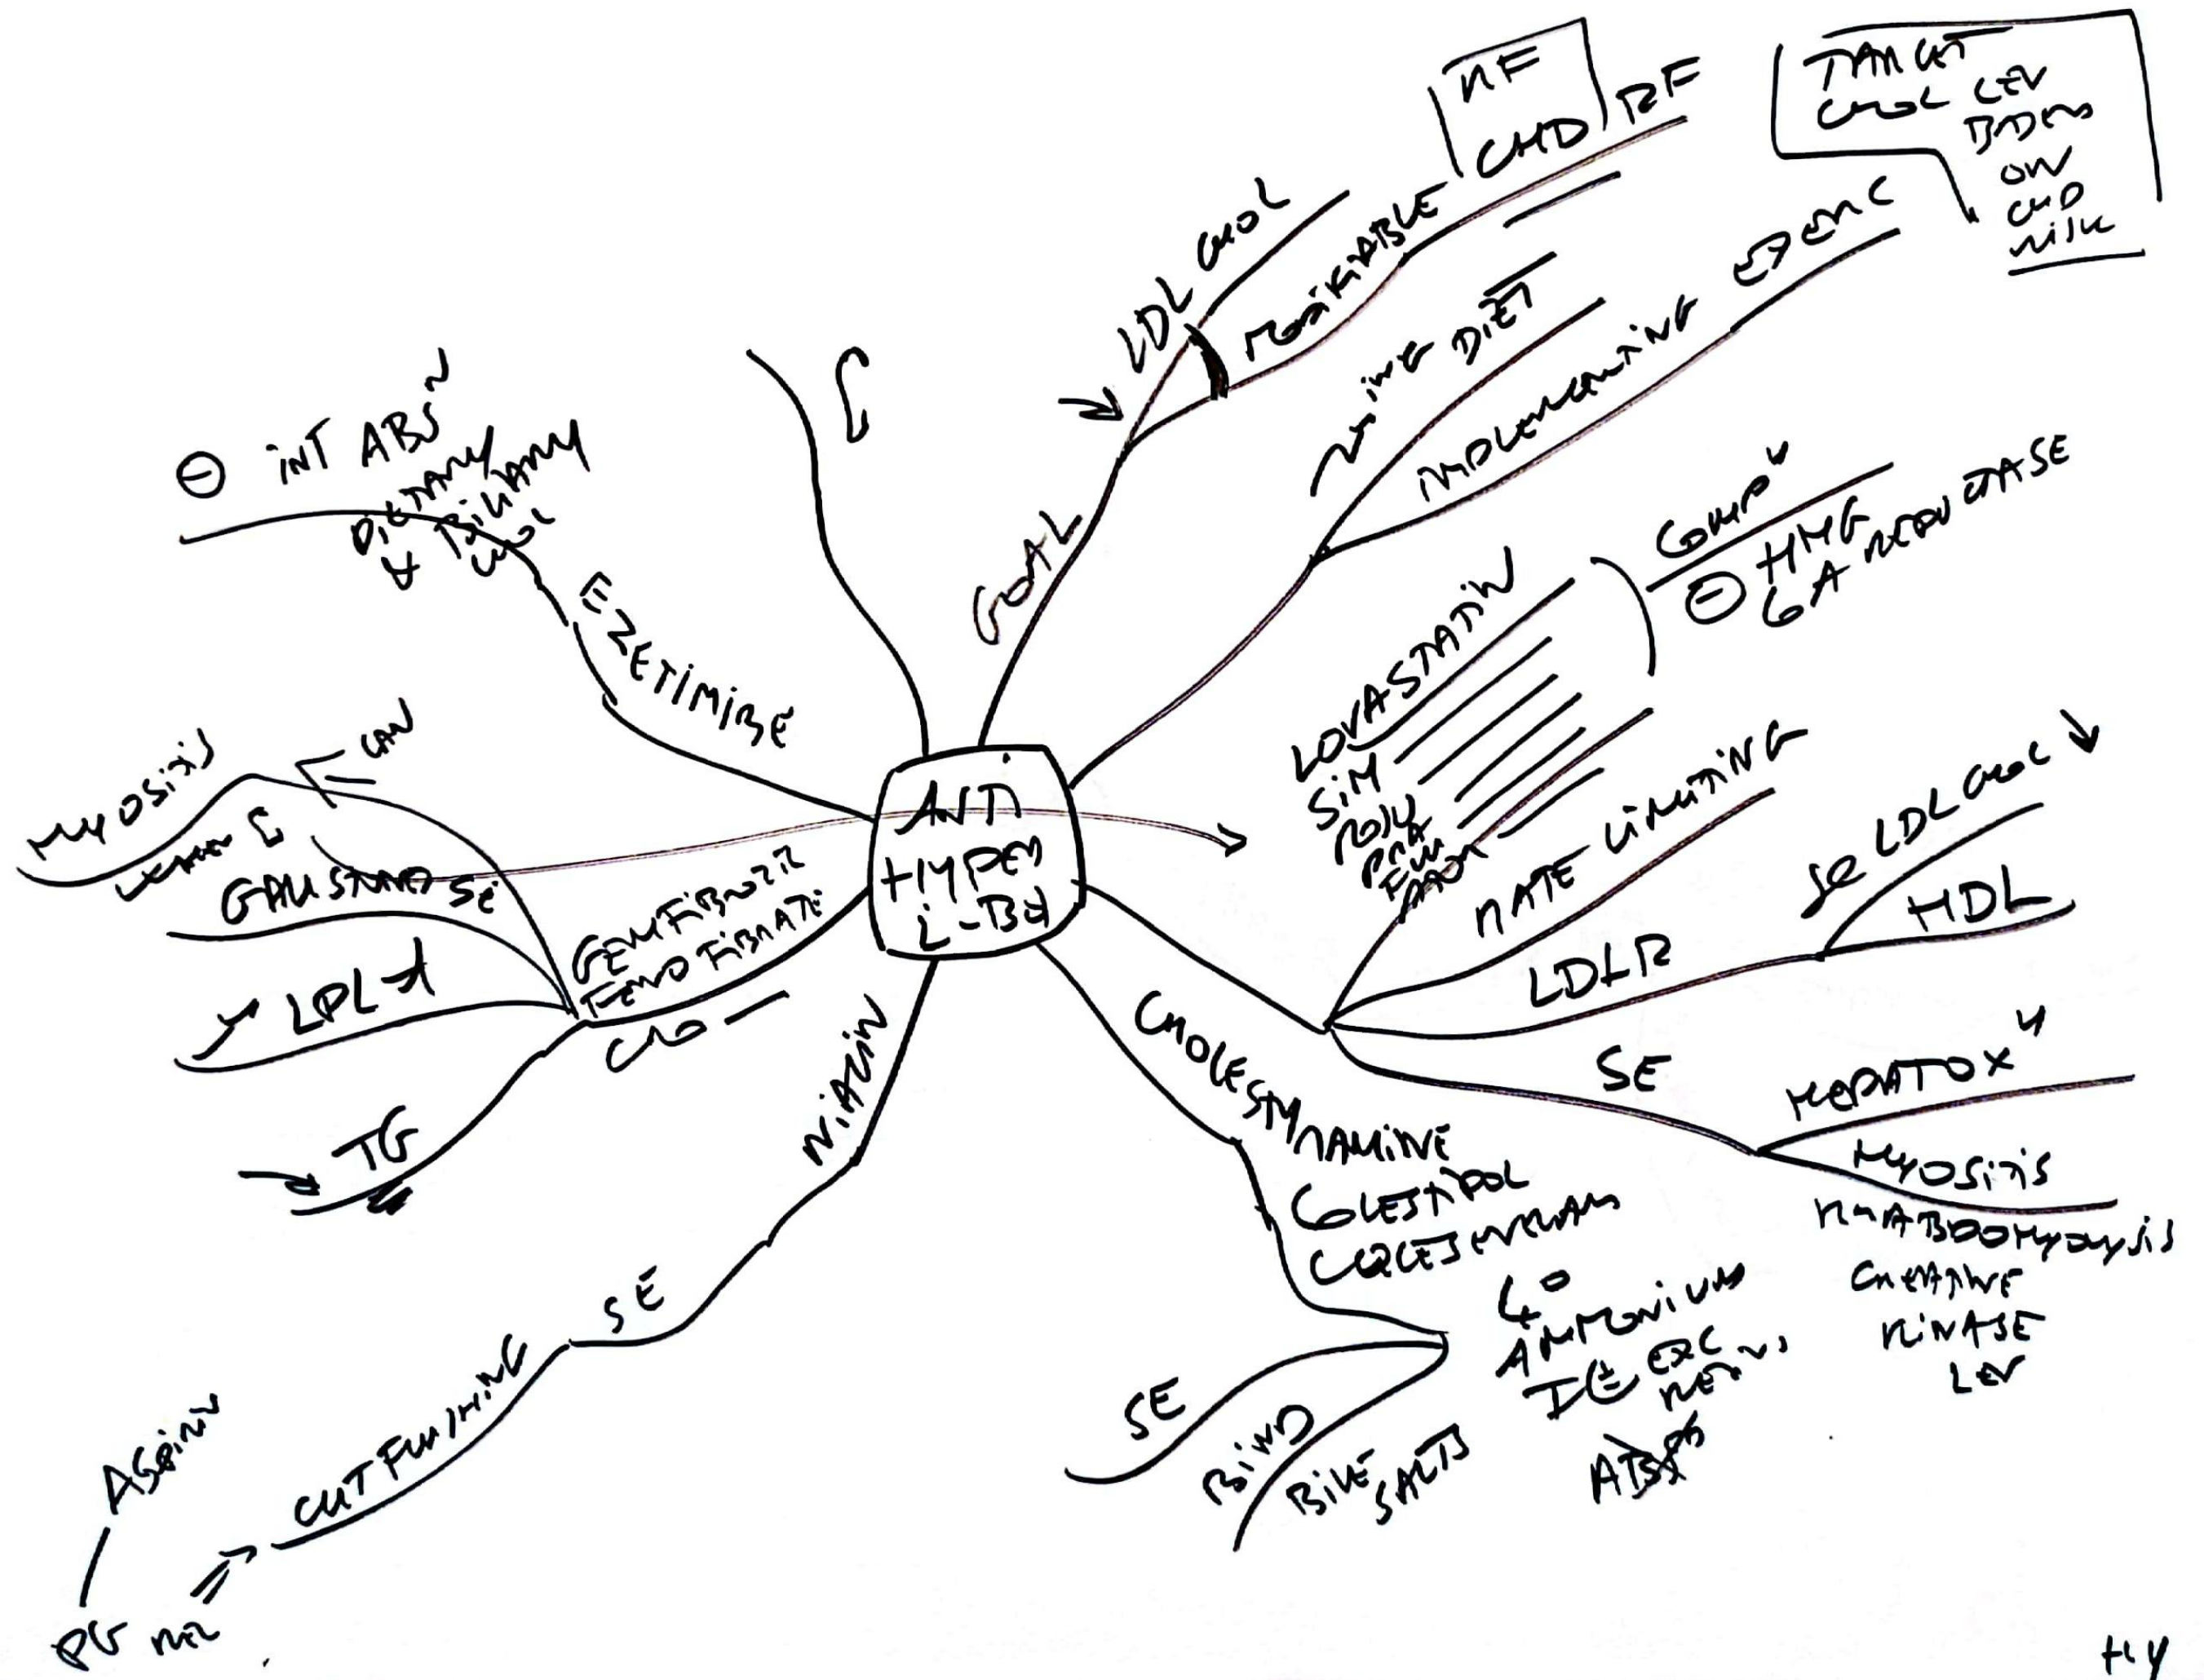 ANTI
HYPER
L-BU
GOAL
↘ LDL CHOL
MODIFIABLE
RF
CHD
RF
TARGET
CHOL LEV
BASED
ON
CHD
RISK
DIET
IMPLEMENTING EXERC
LOVASTATIN
SIM
ROSU
PRA
FLU
COMP
⊖ HMG
CO A REDUCTASE
RATE LIMITING
LDLR
LDL CHOL ↓
HDL
SE
HEPATOX
MYOSITIS
RHABDOMYOLYSIS
CREATINE
KINASE
LEV
CHOLESTYRAMINE
COLESTIPOL
COLESEVELAM
4°
AMMONIUM
EXC
ABS
SE
BIND
BILE
SALTS
NIACIN
SE
CUT FLUSHING
ASPIRIN
PG REL
GEMFIBROZIL
FENOFIBRATE
CLO —
MYOSITIS
CAN
GALLSTONES SE
↗ LPL
↘ TG
EZETIMIBE
⊖ INT ABS
DIETARY
& BILIARY
CHOL
HY